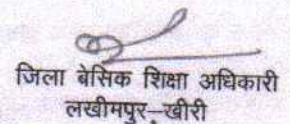 जिला बेसिक शिक्षा अधिकारी
लखीमपुर-खीरी